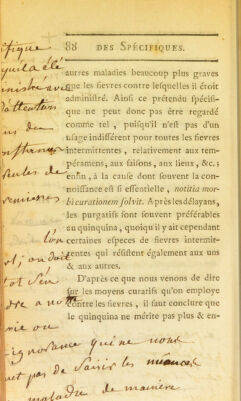 88 DES SPÉCIFIQUES.
autres maladies beaucoup plus graves
que les fievres contre lesquelles il étoit
administré. Ainsi ce prétendu spécifi-
que ne peut donc pas être regardé
comme tel, puisqu'il n'est pas d'un
usage indifférent pour toutes les fievres
intermittentes, relativement aux tem-
péramens, aux saisons, aux lieux, &c.;
enfin, à la cause dont souvent la con-
noissance est si essentielle, notitia mor-
bi curationem solvit. Après les délayans,
les purgatifs sont souvent préférables
au quinquina, quoiqu'il y ait cependant
certaines especes de fievres intermit-
tentes qui résistent également aux uns
& aux autres.
D'après ce que nous venons de dire
sur les moyens curatifs qu'on employe
contre les fievres, il faut conclure que
le quinquina ne mérite pas plus & en-
ifique
qu'il a été
d'attention
l'on
ignorance que ne nous
pas de saisir les nuances
maladie de maniere